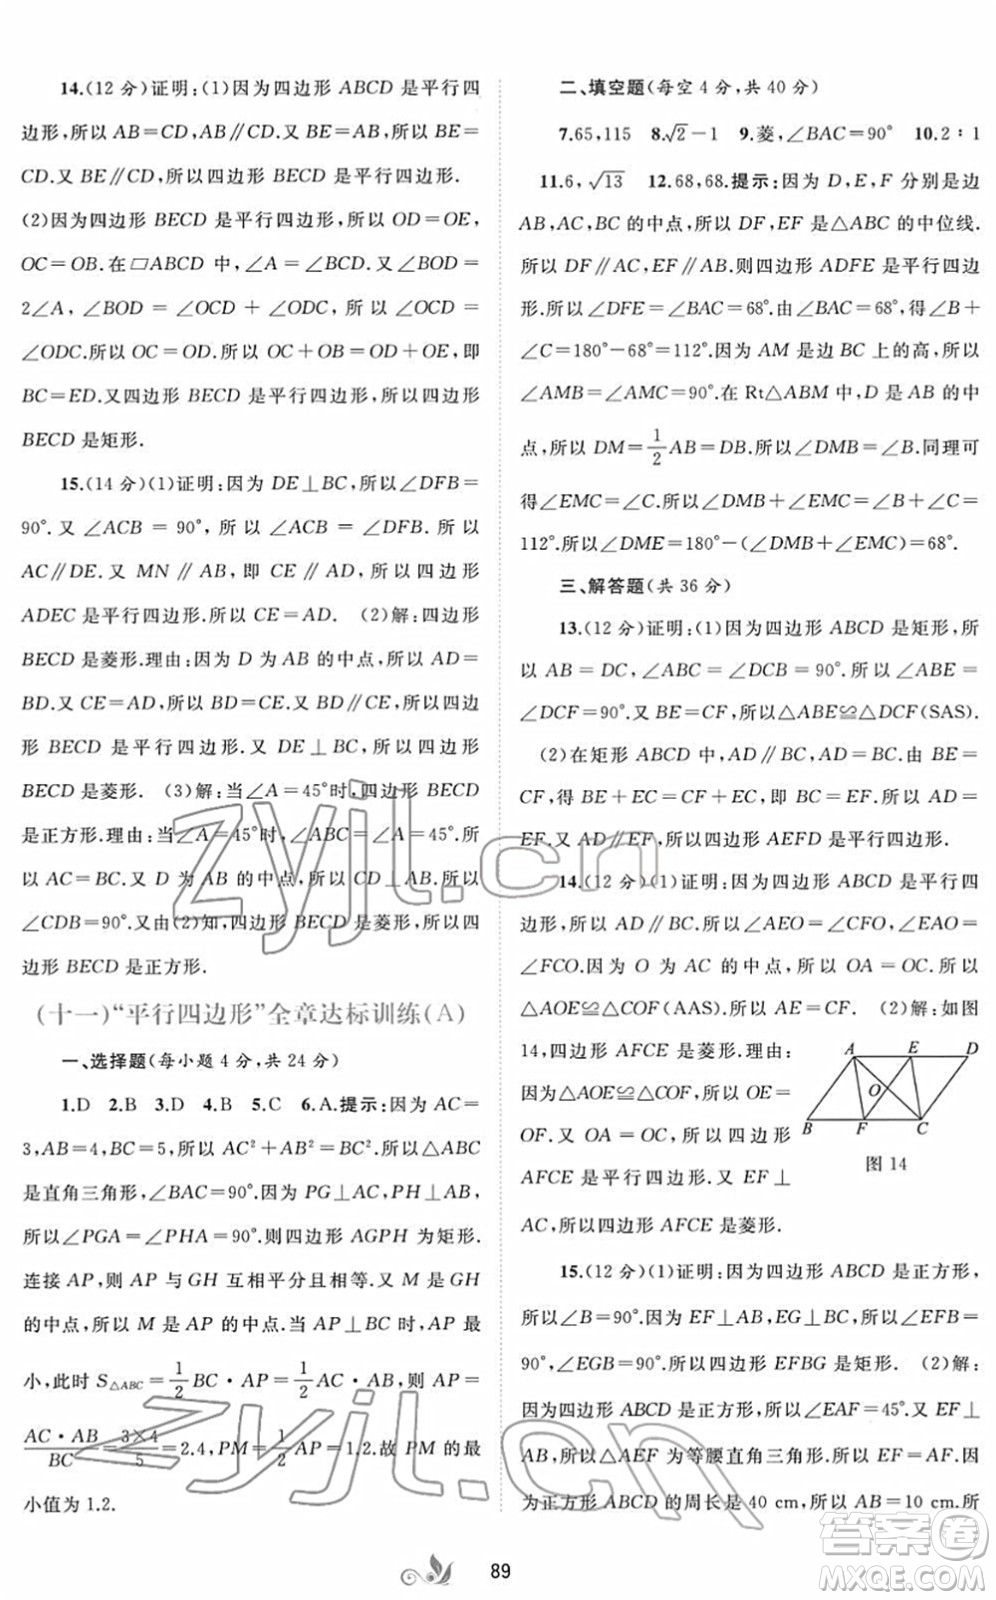 14.(12分)证明:(1)因为四边形 ABCD 是平行四
边形,所以 AB=CD,AB∥CD.又 BE=AB,所以 BE=
CD.又 BE∥CD,所以四边形 BECD 是平行四边形.
(2)因为四边形 BECD 是平行四边形,所以 OD=OE,
OC=OB.在▱ABCD 中,∠A=∠BCD.又∠BOD=
2∠A,∠BOD=∠OCD+∠ODC,所以∠OCD=
∠ODC.所以 OC=OD.所以 OC+OB=OD+OE,即
BC=ED.又四边形 BECD 是平行四边形,所以四边形
BECD 是矩形.
15.(14分)(1)证明:因为 DE⊥BC,所以∠DFB=
90°.又∠ACB=90°,所以∠ACB=∠DFB.所以
AC∥DE.又 MN∥AB,即 CE∥AD,所以四边形
ADEC 是平行四边形.所以 CE=AD. (2)解:四边形
BECD 是菱形.理由:因为 D 为 AB 的中点,所以 AD=
BD.又 CE=AD,所以 BD=CE.又 BD∥CE,所以四边
形 BECD 是平行四边形.又 DE⊥BC,所以四边形
BECD 是菱形. (3)解:当∠A=45°时,四边形 BECD
是正方形.理由:当∠A=45°时,∠ABC=∠A=45°.所
以 AC=BC.又 D 为 AB 的中点,所以 CD⊥AB.所以
∠CDB=90°.又由(2)知,四边形 BECD 是菱形,所以四
边形 BECD 是正方形.
(十一)“平行四边形”全章达标训练(A)
一、选择题(每小题4分,共24分)
1.D 2.B 3.D 4.B 5.C 6.A.提示:因为 AC=
3,AB=4,BC=5,所以 AC²+AB²=BC².所以△ABC
是直角三角形,∠BAC=90°.因为 PG⊥AC,PH⊥AB,
所以∠PGA=∠PHA=90°.所以四边形 AGPH 为矩形.
连接 AP,则 AP 与 GH 互相平分且相等.又 M 是 GH
的中点,所以 M 是 AP 的中点.当 AP⊥BC 时,AP 最
小,此时 S△ABC=1/2 BC·AP=1/2 AC·AB,则 AP=
AC·AB/BC=3×4/5=2.4,PM=1/2 AP=1.2.故 PM 的最
小值为 1.2.
二、填空题(每空4分,共40分)
7.65,115 8.√2−1 9.菱,∠BAC=90° 10.2∶1
11.6,√13 12.68,68.提示:因为 D,E,F 分别是边
AB,AC,BC 的中点,所以 DF,EF 是△ABC 的中位线.
所以 DF∥AC,EF∥AB.则四边形 ADFE 是平行四边
形.所以∠DFE=∠BAC=68°.由∠BAC=68°,得∠B+
∠C=180°−68°=112°.因为 AM 是边 BC 上的高,所以
∠AMB=∠AMC=90°.在 Rt△ABM 中,D 是 AB 的中
点,所以 DM=1/2 AB=DB.所以∠DMB=∠B.同理可
得∠EMC=∠C.所以∠DMB+∠EMC=∠B+∠C=
112°.所以∠DME=180°−(∠DMB+∠EMC)=68°.
三、解答题(共36分)
13.(12分)证明:(1)因为四边形 ABCD 是矩形,所
以 AB=DC,∠ABC=∠DCB=90°.所以∠ABE=
∠DCF=90°.又 BE=CF,所以△ABE≌△DCF(SAS).
(2)在矩形 ABCD 中,AD∥BC,AD=BC.由 BE=
CF,得 BE+EC=CF+EC,即 BC=EF.所以 AD=
EF.又 AD∥EF,所以四边形 AEFD 是平行四边形.
14.(12分)(1)证明:因为四边形 ABCD 是平行四
边形,所以 AD∥BC.所以∠AEO=∠CFO,∠EAO=
∠FCO.因为 O 为 AC 的中点,所以 OA=OC.所以
△AOE≌△COF(AAS).所以 AE=CF. (2)解:如图
14,四边形 AFCE 是菱形.理由:
因为△AOE≌△COF,所以 OE=
OF.又 OA=OC,所以四边形
AFCE 是平行四边形.又 EF⊥
AC,所以四边形 AFCE 是菱形.
A E D
O
B F C
图 14
15.(12分)(1)证明:因为四边形 ABCD 是正方形,
所以∠B=90°.因为 EF⊥AB,EG⊥BC,所以∠EFB=
90°,∠EGB=90°.所以四边形 EFBG 是矩形. (2)解:
因为四边形 ABCD 是正方形,所以∠EAF=45°.又 EF⊥
AB,所以△AEF 为等腰直角三角形.所以 EF=AF.因
为正方形 ABCD 的周长是 40 cm,所以 AB=10 cm.所
89
zyjl.cn
zyjl.cn
答案圈
MXQE.COM